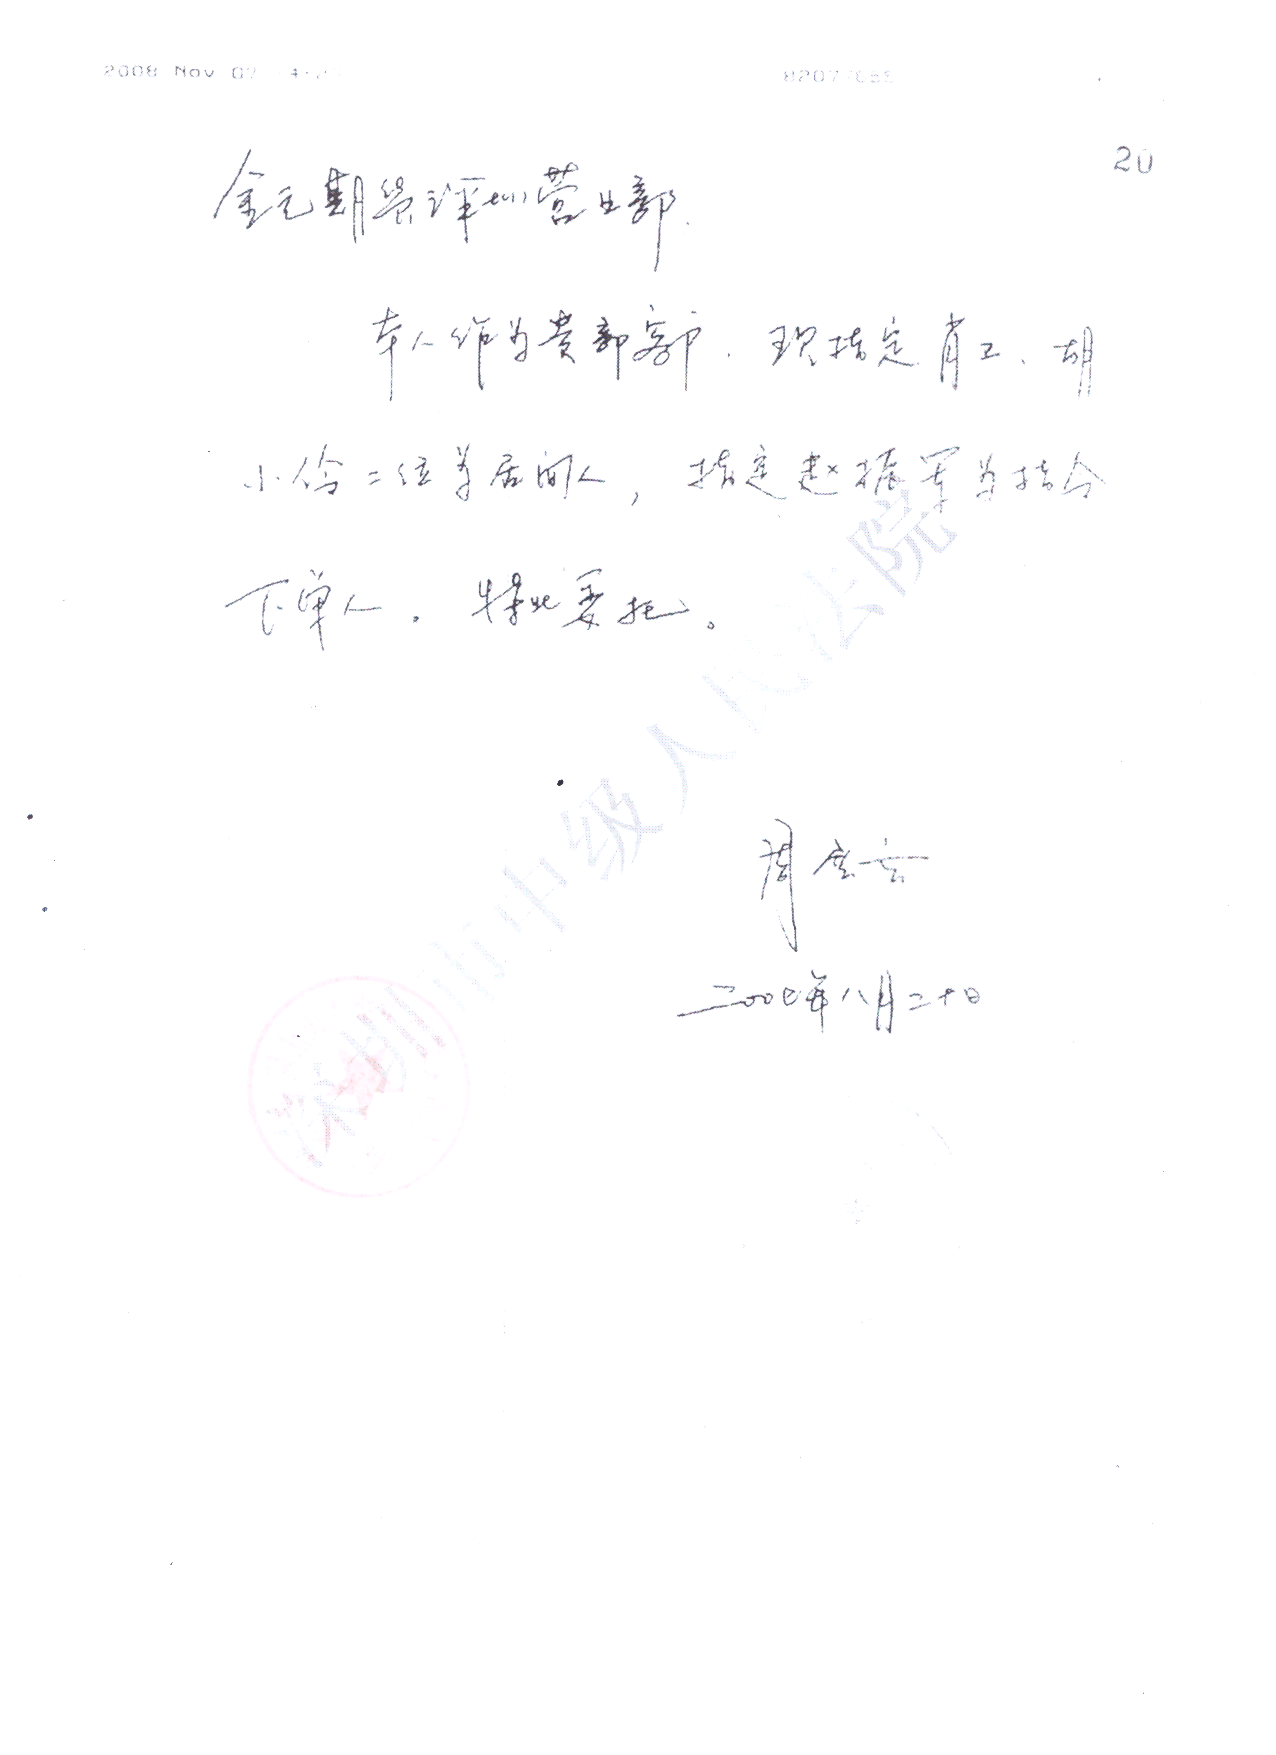 2008 Nov 07
20
金元期货深圳营业部.
本人作为贵部客户. 现指定肖工、胡
小伶二位为居间人，指定赵振军为指令
下单人. 特此委托。
周
二00七年八月二十日
深圳市中级人民法院